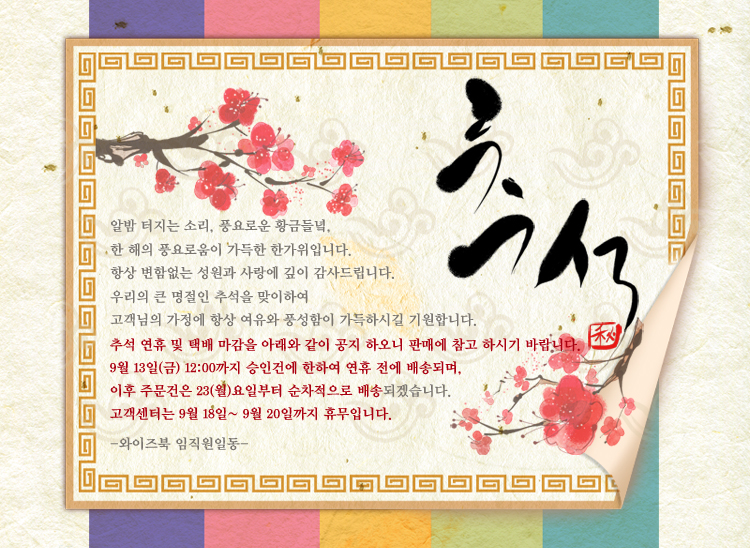 추석
秋
알밤 터지는 소리, 풍요로운 황금들녘,
한 해의 풍요로움이 가득한 한가위입니다.
항상 변함없는 성원과 사랑에 깊이 감사드립니다.
우리의 큰 명절인 추석을 맞이하여
고객님의 가정에 항상 여유와 풍성함이 가득하시길 기원합니다.
추석 연휴 및 택배 마감을 아래와 같이 공지 하오니 판매에 참고 하시기 바랍니다.
9월 13일(금) 12:00까지 승인건에 한하여 연휴 전에 배송되며,
이후 주문건은 23(월)요일부터 순차적으로 배송되겠습니다.
고객센터는 9월 18일~ 9월 20일까지 휴무입니다.
-와이즈북 임직원일동-